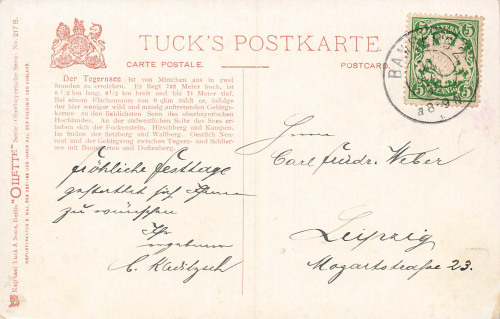 TUCK'S POSTKARTE
CARTE POSTALE.
POSTCARD.
Der Tegernsee ist von München aus in zwei
Stunden zu erreichen. Er liegt 732 Meter hoch, ist
lang, breit und bis 71 Meter tief.
Bei einem Flächenraum von 9 qkm zählt er, infolge
der hier weniger wild und massig auftretenden Gebirgs-
ketten zu den lieblichsten Seen des oberbayerischen
Hochlandes. An der südwestlichen Seite des Sees er-
heben sich der Fockenstein, Hirschberg und Kampen.
Im Süden der Setzberg und Wallberg. Oestlich Neu-
reut und der Gebirgszug zwischen Tegern- und Schlier-
see mit Baumgarten und
Fröhliche Festtage
gestattet sich Ihnen
zu wünschen
Ihr
ergebener
Herrn
Carl Friedr. Weber
Leipzig
Mozartstraße 23.
5 BAYERN 5
BA
8-9
Raphael Tuck & Sons, Berlin "OILETTE" Serie »Oberbayerische Seen« No. 217 B.